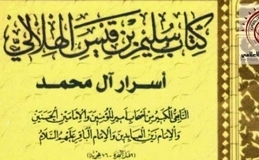 كتاب سليم بن قيس الهلالي
أسرار آل محمد
التابعي الكبير من أصحاب أمير المؤمنين والإمامين الحسنين
والإمام زين العابدين والإمام الباقر عليهم السلام